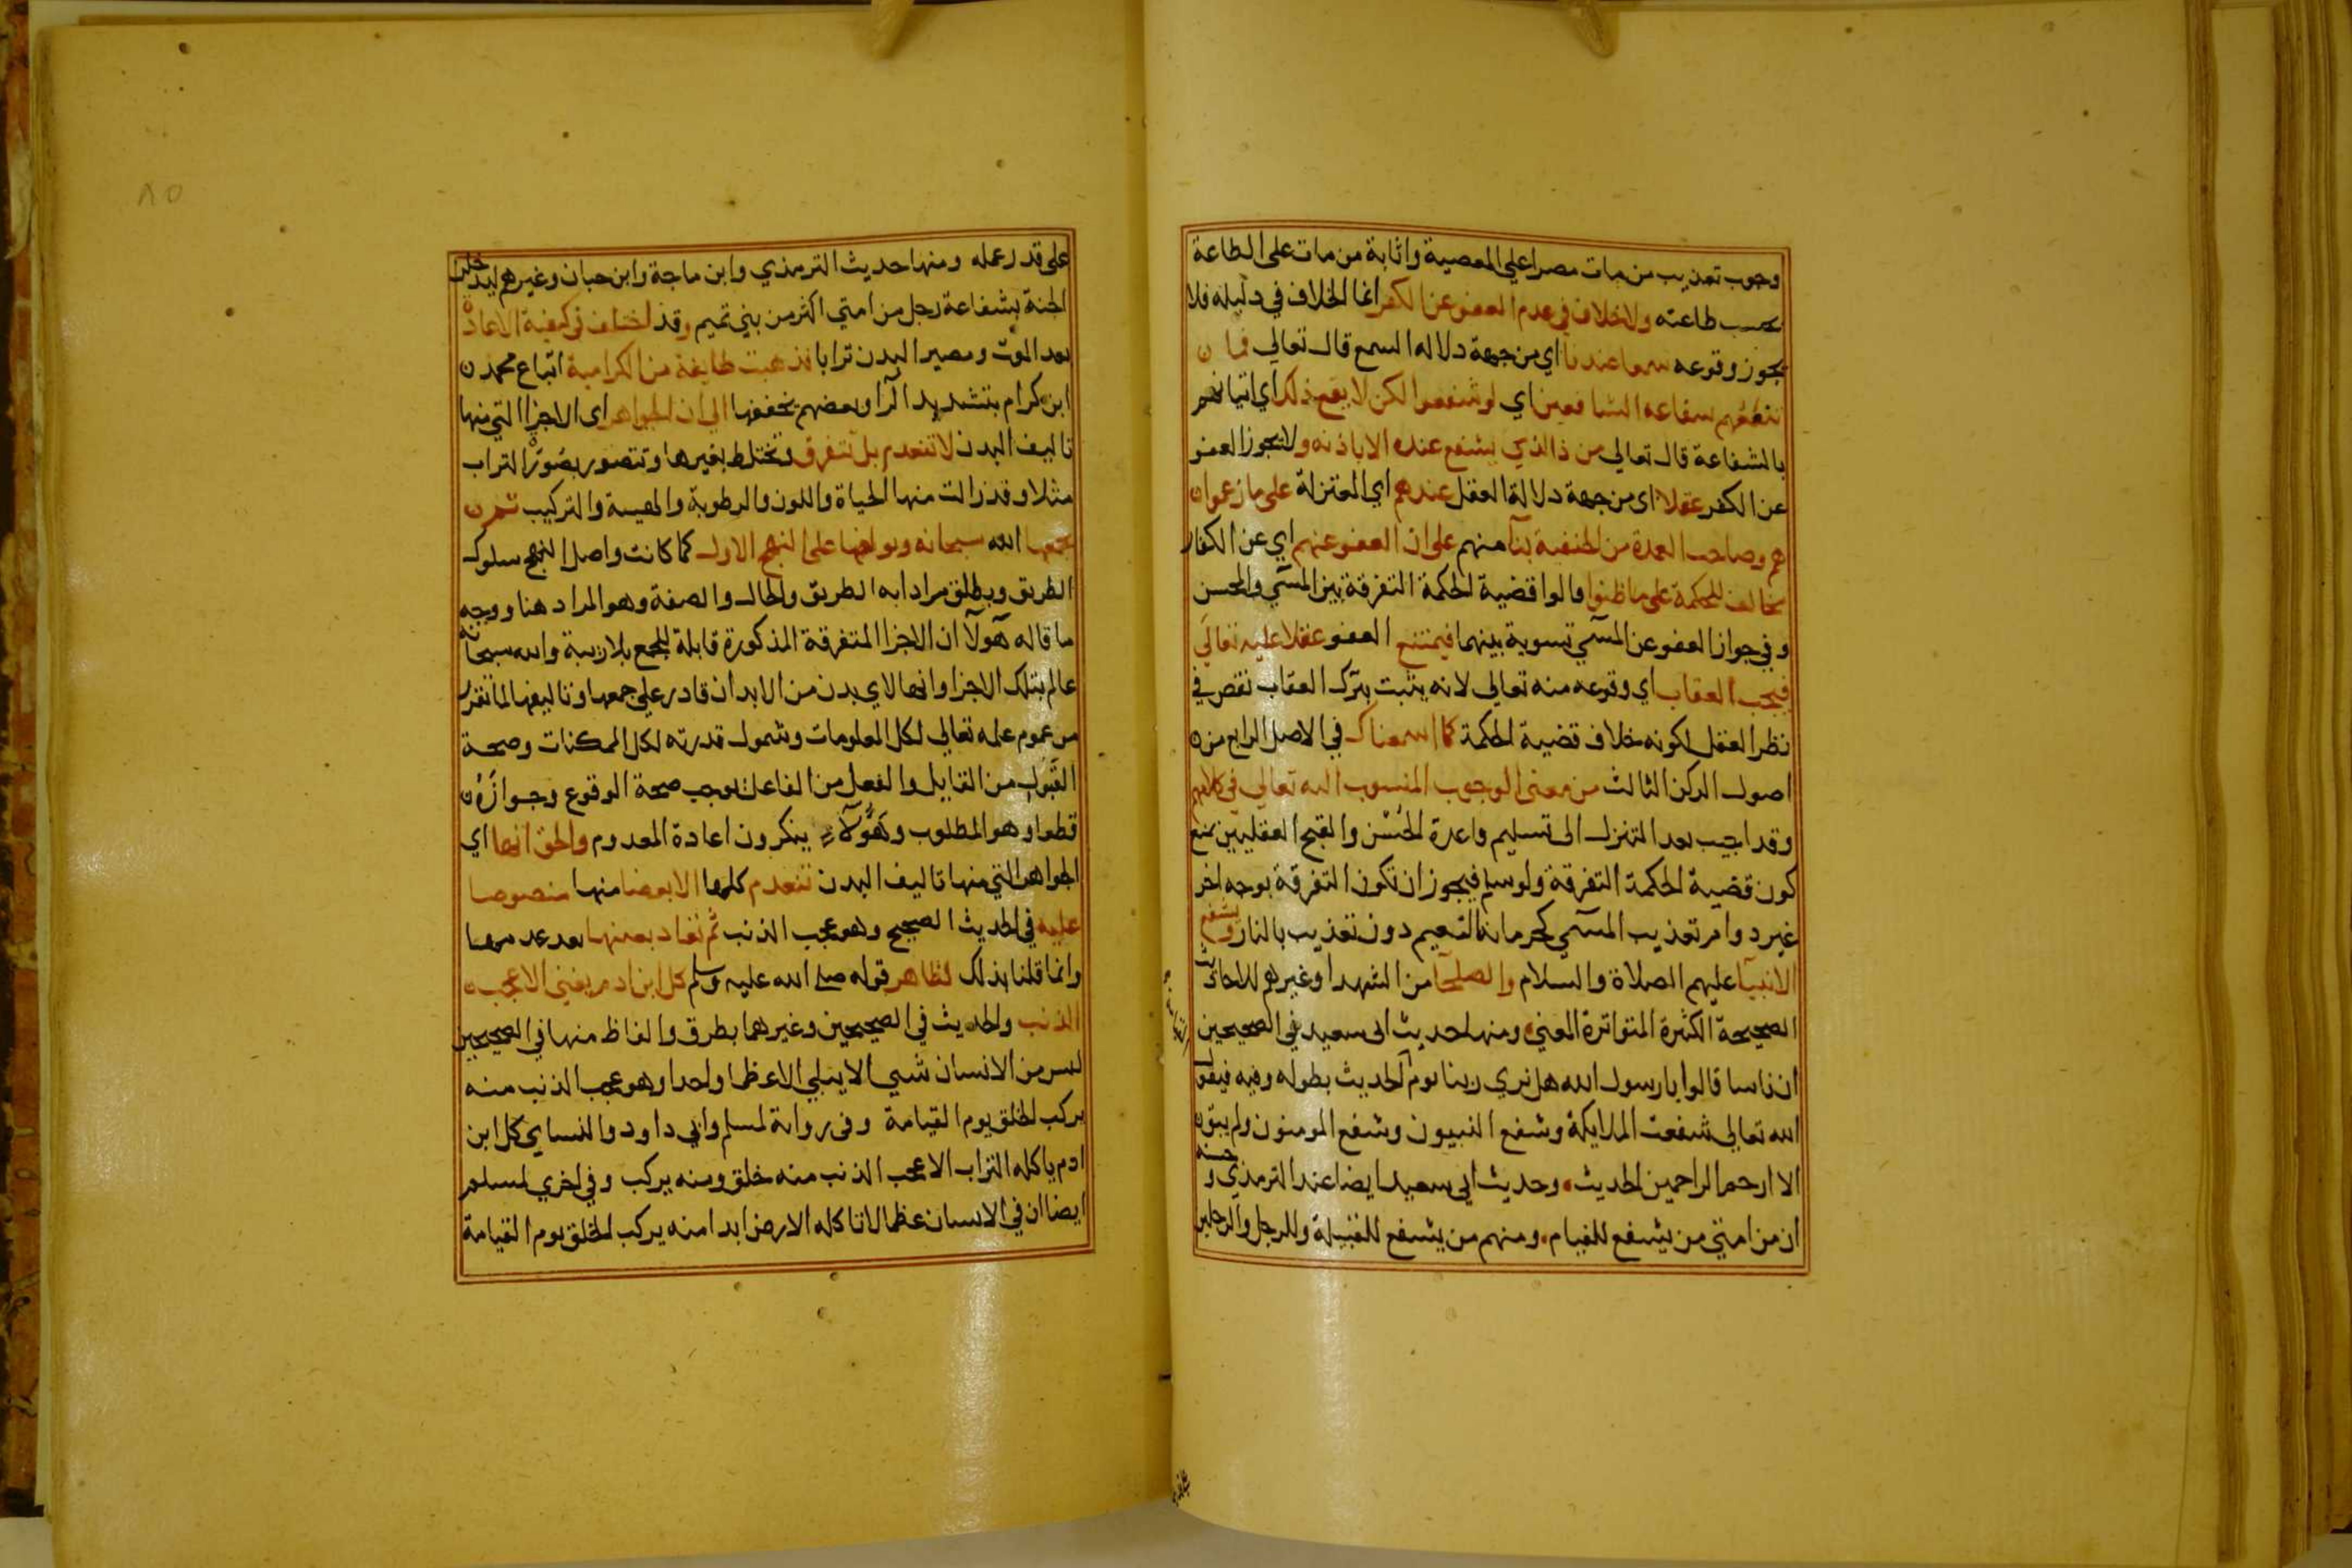 وجوب تعذيب من مات مصرا على المعصية واثابة من مات على الطاعة
بحسب طاعته ولاخلاف في عدم العفو عن الكفر انما الخلاف في دليله فلا
يجوز وقوعه سمعا عندنا اي من جهة دلالة السمع قال تعالي فما
تنفعهم شفاعة الشافعين اي لو شفعوا لكن لا يقع ذلك اي اتيانهم
بالشفاعة قال تعالي من ذا الذي يشفع عنده الا باذنه ولا يجوز العفو
عن الكفر عقلا اي من جهة دلالة العقل عندهم اي المعتزلة على ما زعموا
هم وصاحب العمدة من الحنفية بنآ منهم على ان العفو عنهم اي عن الكفار
مخالف للحكمة على ما ظنوا قالوا قضية الحكمة التفرقة بين المسي والمحسن
وفي جواز العفو عن المسي تسوية بينهما فيمتنع العفو عقلا عليه تعالي
فيجب العقاب اي وقوعه منه تعالي لانه يثبت بترك العقاب نقص في
نظر العقل لكونه خلاف قضية الحكمة كما اسمعناك في الاصل الرابع من
اصول الركن الثالث من معنى الوجوب المنسوب اليه تعالي في كلامهم
وقد اجيب بعد التنزل الى تسليم قاعدة الحُسْن والقبح العقليين بمنع
كون قضية الحكمة التفرقة ولو سلم فيجوز ان تكون التفرقة بوجه اخر
غير دوام تعذيب المسي كحرمانه النعيم دون تعذيب بالنار ويشفع
الانبيآ عليهم الصلاة والسلام والصلحآ من الشهدا وغيرهم للاحاديث
الصحيحة الكثيرة المتواترة المعنى ومنها حديث ابي سعيد في الصحيحين
ان ناسا قالوا يا رسول الله هل نري ربنا يوم الحديث بطوله وفيه فيقول
الله تعالي شفعت الملايكة وشفع النبيون وشفع المومنون ولم يبق
الا ارحم الراحمين الحديث وحديث ابي سعيد ايضا عند الترمذي وحسنه
ان من امتي من يشفع للفيام ومنهم من يشفع للقبيلة وللرجل والرجلين
٨٥
على قدر عمله ومنها حديث الترمذي وابن ماجة وابن حبان وغيرهم ليدخلن
الجنة بشفاعة رجل من امتي اكثر من بني تميم وقد اختلف في كيفية الاعادة
بعد الموت ومصير البدن ترابا فذهبت طايفة من الكرامية اتباع محمد
ابن كرام بتشديد الرآ وبعضهم يخففها الي ان الجواهر اى الاجزا التي منها
تاليف البدن لا تنعدم بل تتفرق وتختلط بغيرها وتتصور بصُورَة التراب
مثلا وقد زالت منها الحياة واللون والرطوبة والهيية والتركيب ثم
يجمعها الله سبحانه ويولفها على النهج الاول كما كانت واصل النهج سلوك
الطريق ويطلق مرادا به الطريق والحال والصفة وهو المراد هنا ووجه
ما قاله هولآ ان الاجزا المتفرقة المذكورة قابلة للجمع بلا ريبة والله سبحانه
عالم بتلك الاجزا وانها لاي بدن من الابدان قادر علي جمعها وتاليفها لما تقرر
من عموم علمه تعالي لكل المعلومات وشمول قدرته لكل الممكنات وصحة
القَبُول من القابل والفعل من الفاعل توجب صحة الوقوع وجوازَهُ
قطعا وهو المطلوب وهَؤُلآء ينكرون اعادة المعدوم والحق انها اي
الجواهر التي منها تاليف البدن تنعدم كلها الا بعضا منها منصوصا
عليه في الحديث الصحيح وهو عجب الذنب ثم تُعَاد بعينها بعد عدمها
وانما قلنا بذلك لظاهر قوله صلى الله عليه وسلم كل ابن ادم يفني الا عجب
الذنب والحديث في الصحيحين وغيرهما بطرق والفاظ منها في الصحيحين
ليس من الانسان شي الا يبلي الا عظما واحدا وهو عجب الذنب منه
يركب الخلق يوم القيامة وفي رواية لمسلم وابي داود والنساي كل ابن
ادم ياكله التراب الا عجب الذنب منه خلق ومنه يركب وفي اخري لمسلم
ايضا ان في الانسان عظما لا تاكله الارض ابدا منه يركب الخلق يوم القيامة